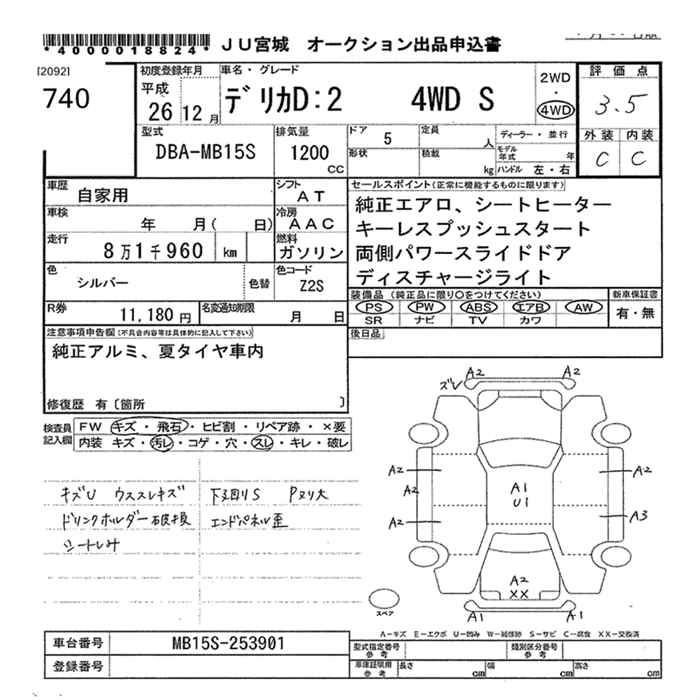 *4000018824* JU宮城 オークション出品申込書
[2092]
740
初度登録年月
平成
26 12 月
車名・グレード
デリカD:2 4WD S
2WD
4WD
評価点
3.5
外装 内装
C C
型式
DBA-MB15S
排気量
1200
CC
ドア
5
定員
人
形状
積載
kg
ディーラー・並行
モデル年式
年
ハンドル 左・右
車歴
自家用
シフト
AT
車検
年 月( 日)
冷房
AAC
走行
8万1千960 km
燃料
ガソリン
色
シルバー
色替
色コード
Z2S
R券
11,180円
名変通知期限
月 日
セールスポイント(正常に機能するものに限ります)
純正エアロ、シートヒーター
キーレスプッシュスタート
両側パワースライドドア
ディスチャージライト
装備品(純正品に限り○をつけてください)
PS PW ABS エアB AW
SR ナビ TV カワ
新車保証書
有・無
後日品
注意事項申告欄(不具合内容等は具体的に記入して下さい)
純正アルミ、夏タイヤ車内
修復歴 有〔箇所 〕
検査員
記入欄
FW キズ・飛石・ヒビ割・リペア跡・×要
内装 キズ・汚レ・コゲ・穴・スレ・キレ・破レ
キズU ウススレキズ 下廻りS Pヌリ大
ドリンクホルダー破損 エンドパネル歪
シートしみ
ズレ A2 A2
A2 A2
A2 A1
U1
A2 A3
A2
XX
A1 A1
スペア
A-キズ E-エクボ U-凹み W-補修跡 S-サビ C-腐食 XX-交換済
車台番号
MB15S-253901
登録番号
型式指定番号
参考
類別区分番号
参考
車庫証明用
参考
長さ cm 幅 cm 高さ cm